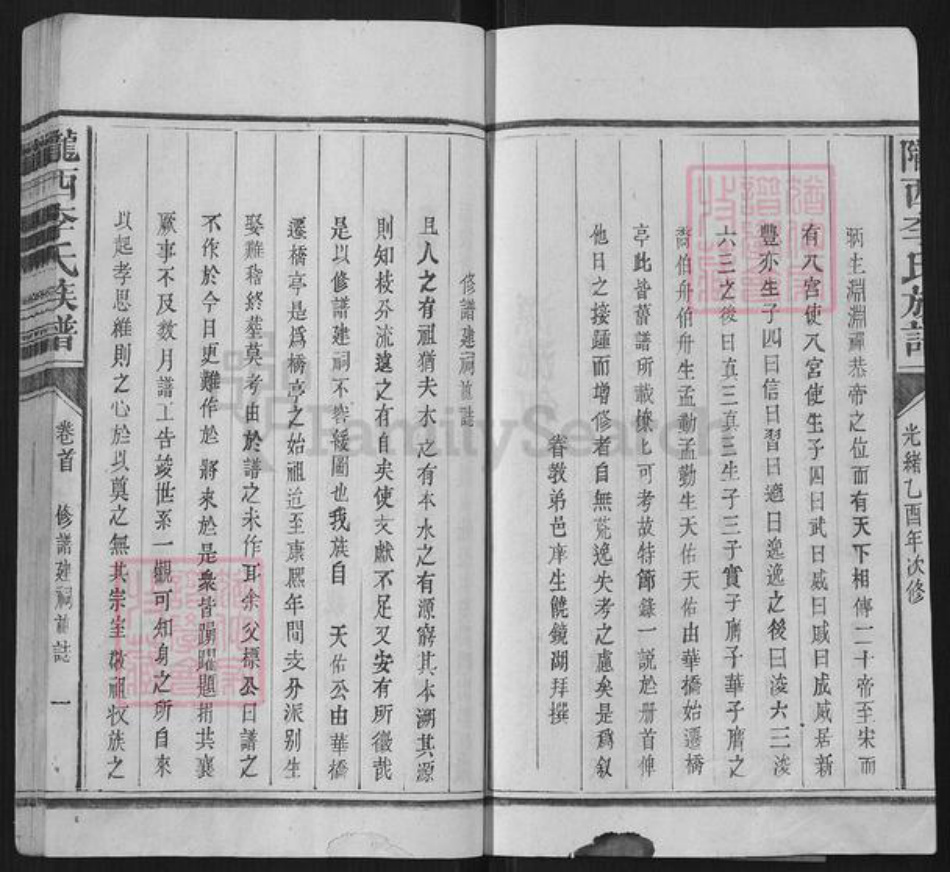 隴西李氏族譜
光緒乙酉年次修
昞生淵淵禪恭帝之位而有天下相傳二十帝至宋而
有八宮使八宮使生子四曰武曰威曰咸曰成威居新
豐亦生子四曰信曰習曰適曰逸逸之後曰浚六三浚
六三之後曰真三真三生子三子實子膺子華子膺之
裔伯舟伯舟生孟勳孟勳生天佑天佑由華橋始遷橋
亭此皆舊譜所載歷歷可考故特節錄一説於册首俾
他日之接踵而增修者自無荒逸失考之慮矣是爲叙
眷教弟邑庠生饒鏡湖拜撰
修譜建祠並誌
且人之有祖猶夫木之有本水之有源窮其本溯其源
則知枝分流遠之有自矣使文獻不足又安有所徵哉
是以修譜建祠不容緩圖也我族自 天佑公由華橋
遷橋亭是爲橋亭之始祖迨至康熙年間支分派别生
娶難稽終塟莫考由於譜之未作耳余父標公曰譜之
不作於今日更難作於將來於是衆皆踴躍題捐共襄
厥事不及数月譜工告竣世系一觀可知身之所自來
以起孝思維則之心於以奠之無其宗室敬祖收族之
隴西李氏族譜
卷首
修譜建祠並誌
一
FamilySearch